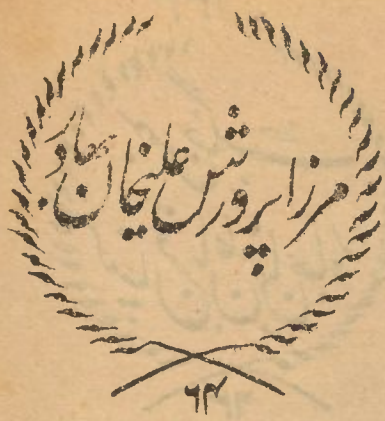 مرزا پرورش علیخان بهادر
۶۴